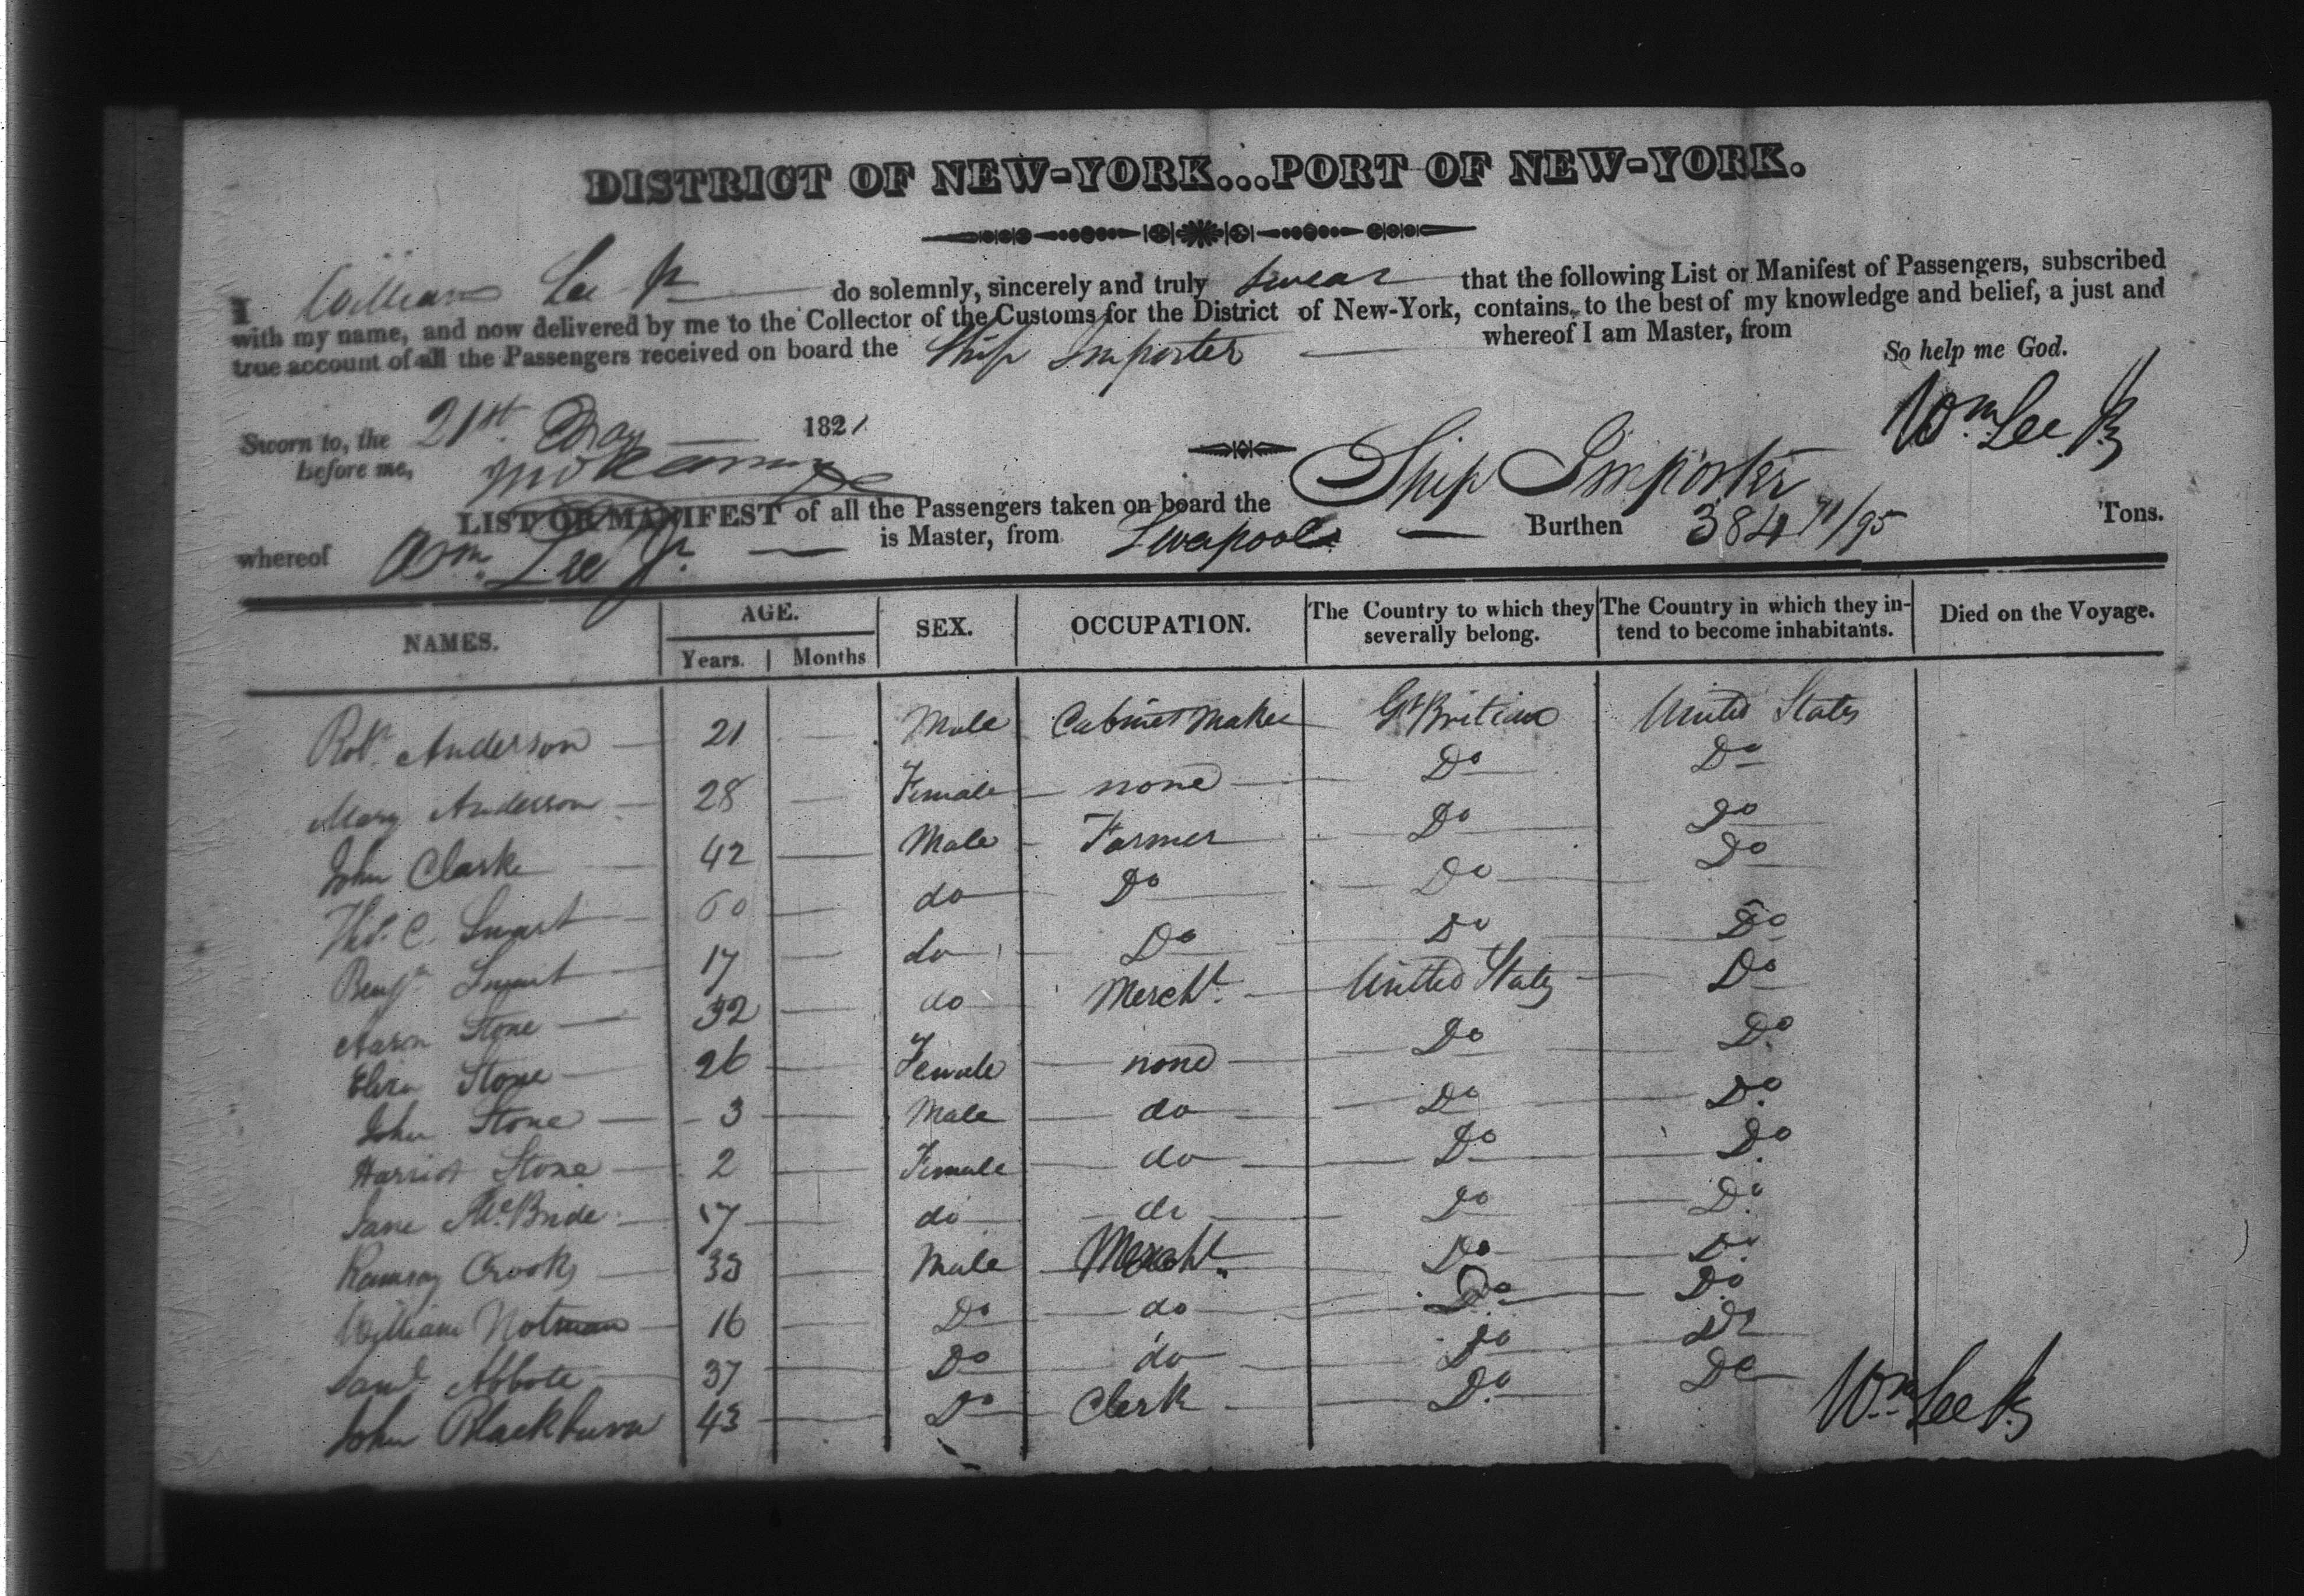 DISTRICT OF NEW-YORK...PORT OF NEW-YORK.
I William Lee Jr do solemnly, sincerely and truly swear that the following List or Manifest of Passengers, subscribed
with my name, and now delivered by me to the Collector of the Customs for the District of New-York, contains, to the best of my knowledge and belief, a just and
true account of all the Passengers received on board the Ship Importer whereof I am Master, from
So help me God.
Sworn to, the 21st May 1821
before me,
Wm Lee Jr
LIST OR MANIFEST of all the Passengers taken on board the Ship Importer
whereof Wm. Lee Jr. is Master, from Liverpool Burthen 384 71/95 Tons.
NAMES. AGE. Years. Months SEX. OCCUPATION. The Country to which they severally belong. The Country in which they intend to become inhabitants. Died on the Voyage.
Robt. Anderson 21 Male Cabinet Maker Gt Britian United States
Mary Anderson 28 Female none Do Do
John Clarke 42 Male Farmer Do Do
Thos. C. Smart 60 do Do Do Do
Benjn. Smart 17 do Do Do Do
Aaron Stone 32 do Mercht. United States Do
Eliza Stone 26 Female none Do Do.
John Stone 3 Male do Do Do.
Harriot Stone 2 Female do Do Do.
Jane McBride 17 do do Do Do.
Ramsay Crooks 33 Male Mercht. Do Do.
William Notman 16 Do do Do Do.
Saml. Abbote 37 Do do Do Do
John Blackburn 43 Do Clerk Do. Do
Wm Lee Jr